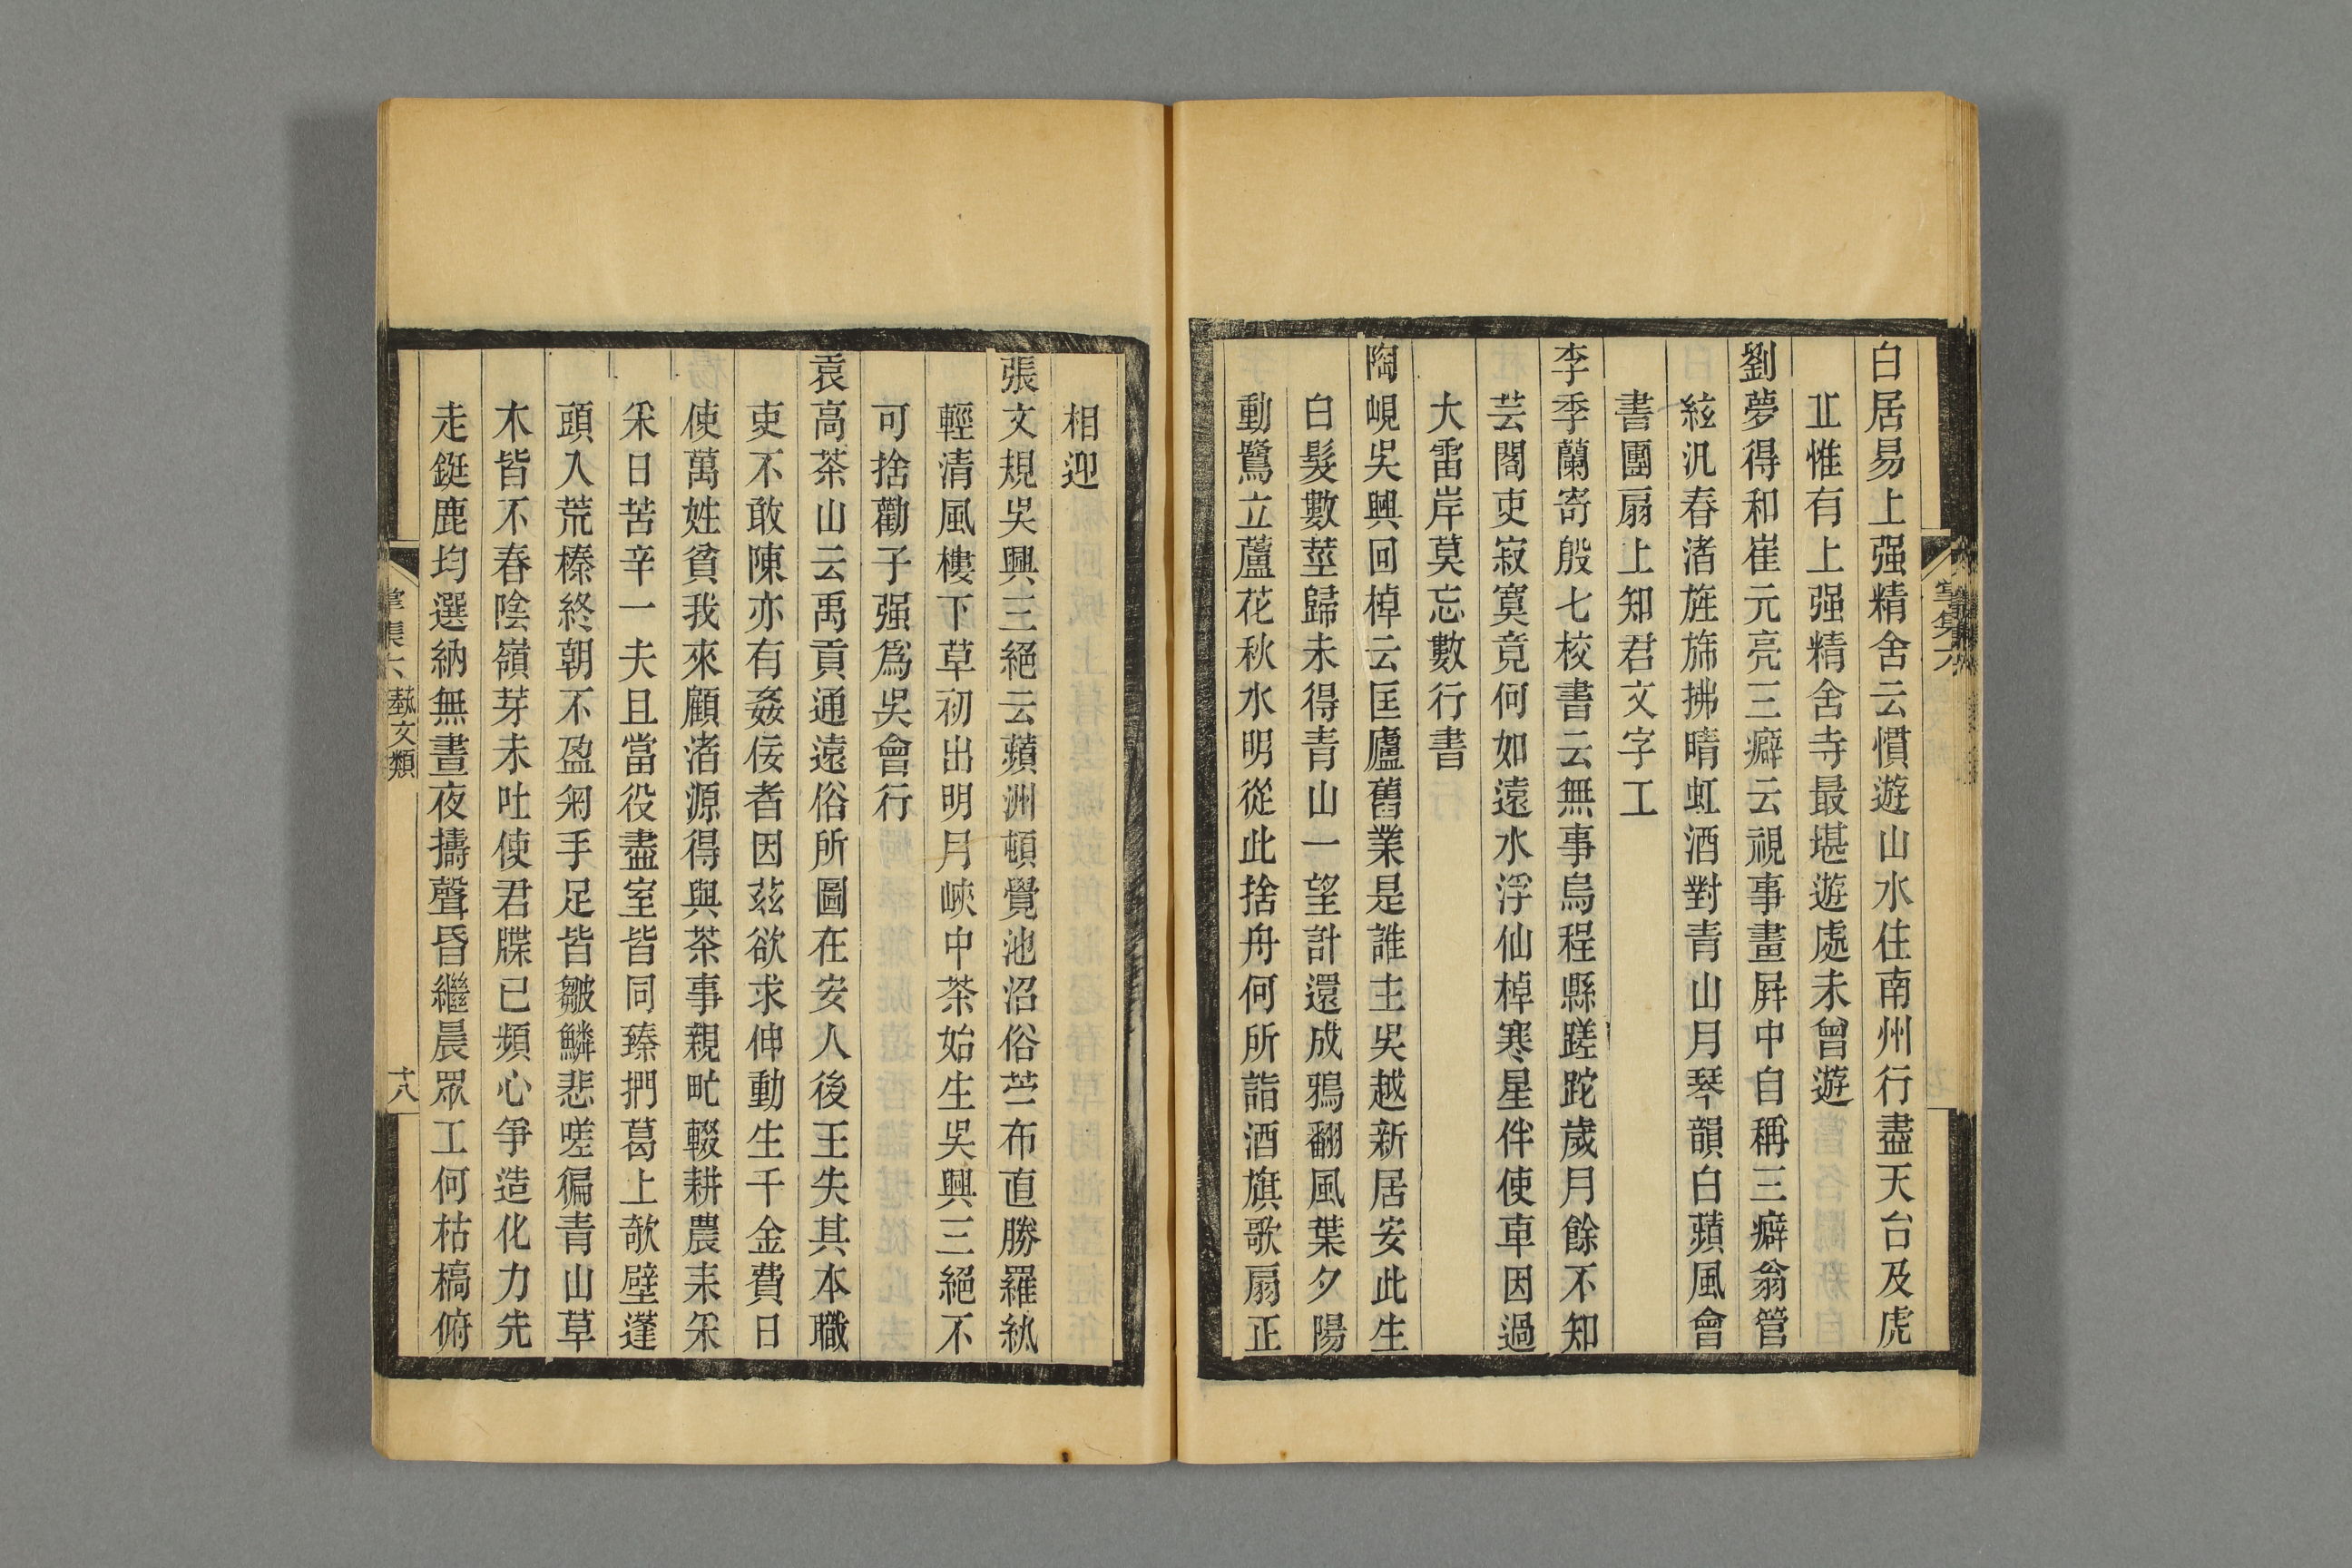 白居易上强精舍云慣遊山水住南州行盡天台及虎
丠惟有上强精舍寺最堪遊處未曾遊
劉夢得和崔元亮三癖云視事畫屛中自稱三癖翁管
絃汎春渚旌斾拂晴虹酒對青山月琴韻白蘋風會
書團扇上知君文字工
李季蘭寄殷七校書云無事烏程縣蹉跎歲月餘不知
芸閣吏寂寞竟何如遠水浮仙棹寒星伴使車因過
大雷岸莫忘數行書
陶峴吳興回棹云匡廬舊業是誰主吳越新居安此生
白髮數莖歸未得青山一望計還成鴉翻風葉夕陽
動鷺立蘆花秋水明從此捨舟何所詣酒旗歌扇正
相迎
張文規吳興三絕云蘋洲頓覺池沼俗苎布直勝羅紈
輕清風樓下草初出明月峽中茶始生吳興三絕不
可捨勸子强爲吳會行
袁高茶山云禹貢通遠俗所圖在安人後王失其本職
吏不敢陳亦有姦佞者因茲欲求伸動生千金費日
使萬姓貧我來顧渚源得與茶事親甿輟耕農耒采
采日苦辛一夫且當役盡室皆同臻捫葛上欹壁蓬
頭入荒榛終朝不盈匊手足皆皺鱗悲嗟徧青山草
木皆不春陰嶺芽未吐使君牒已頻心爭造化力先
走鋌鹿均選納無晝夜擣聲昏繼晨眾工何枯槁俯
掌集六 藝文類 十八